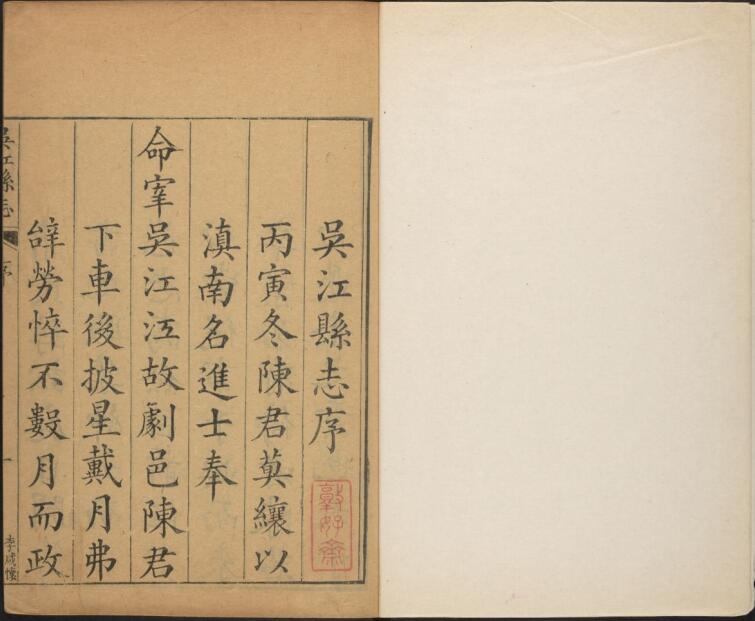 吳江縣志序
丙寅冬陳君莫纕以
滇南名進士奉
命宰吳江江故劇邑陳君
下車後披星戴月弗
辝勞悴不數月而政
吳江縣志
序
一